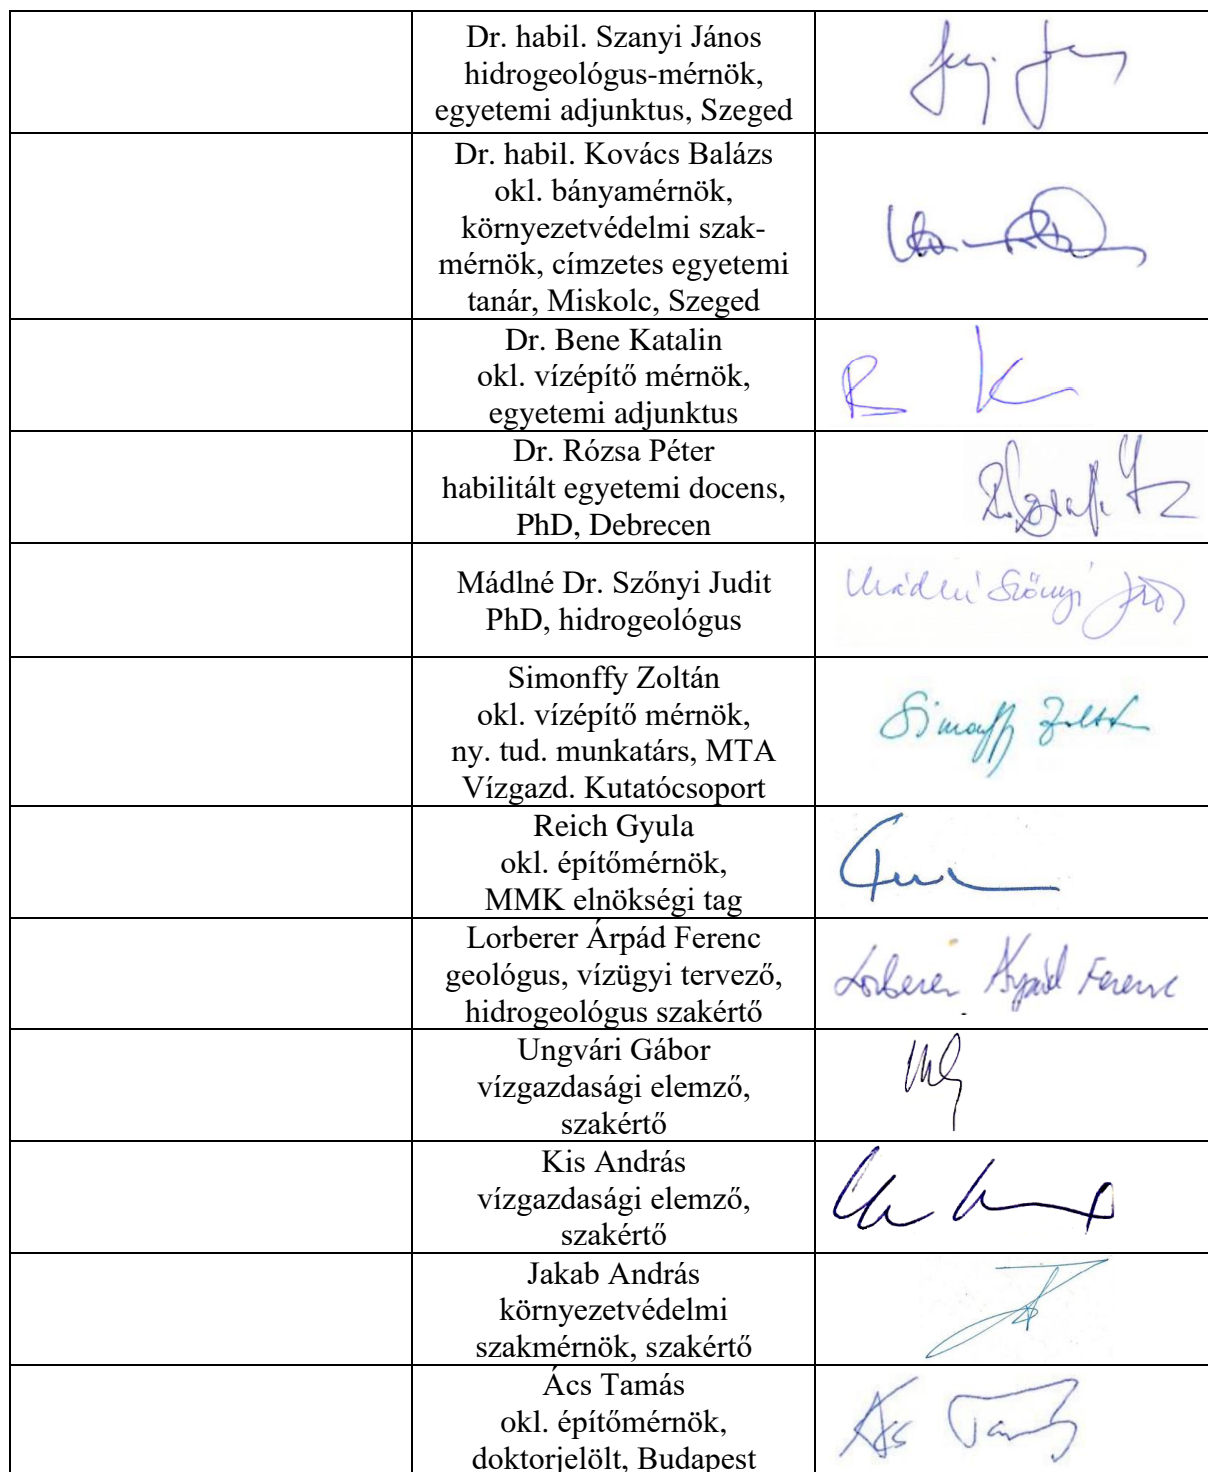 Dr. habil. Szanyi János
hidrogeológus-mérnök,
egyetemi adjunktus, Szeged
Dr. habil. Kovács Balázs
okl. bányamérnök,
környezetvédelmi szak-
mérnök, címzetes egyetemi
tanár, Miskolc, Szeged
Dr. Bene Katalin
okl. vízépítő mérnök,
egyetemi adjunktus
B K
Dr. Rózsa Péter
habilitált egyetemi docens,
PhD, Debrecen
Mádlné Dr. Szőnyi Judit
PhD, hidrogeológus
Mádlné Szőnyi
Simonffy Zoltán
okl. vízépítő mérnök,
ny. tud. munkatárs, MTA
Vízgazd. Kutatócsoport
Simonffy Zoltán
Reich Gyula
okl. építőmérnök,
MMK elnökségi tag
Lorberer Árpád Ferenc
geológus, vízügyi tervező,
hidrogeológus szakértő
Lorberer Árpád Ferenc
Ungvári Gábor
vízgazdasági elemző,
szakértő
Kis András
vízgazdasági elemző,
szakértő
Jakab András
környezetvédelmi
szakmérnök, szakértő
Ács Tamás
okl. építőmérnök,
doktorjelölt, Budapest
Ács Tamás